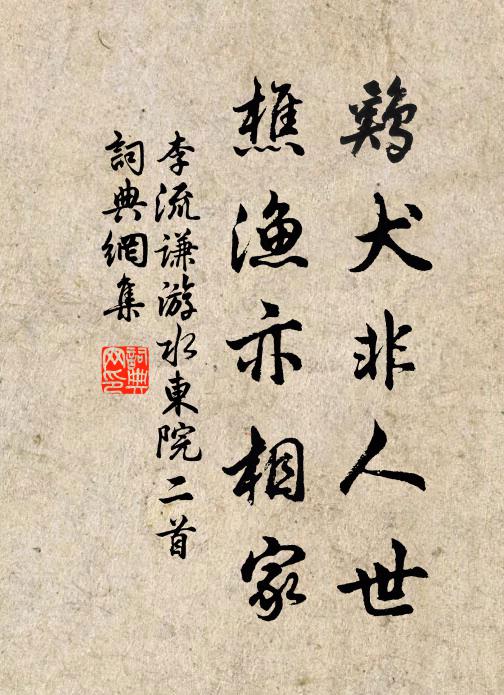 鷄犬非人世
樵漁亦相家
李流謙游水東院二首
詞典網集
詞典
网印